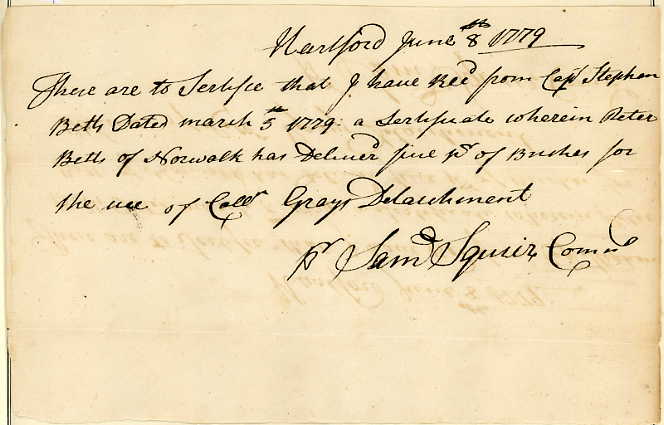 Hartford June 8th 1779
These are to Sertifie that I have Recd from Capt Stephen
Betts Dated march 5th 1779: a Sertificate wherein Peter
Betts of Norwalk has Deliverd five pr of Bushes for
the use of Collo Grays Detachment
pr Samd Squier Comns